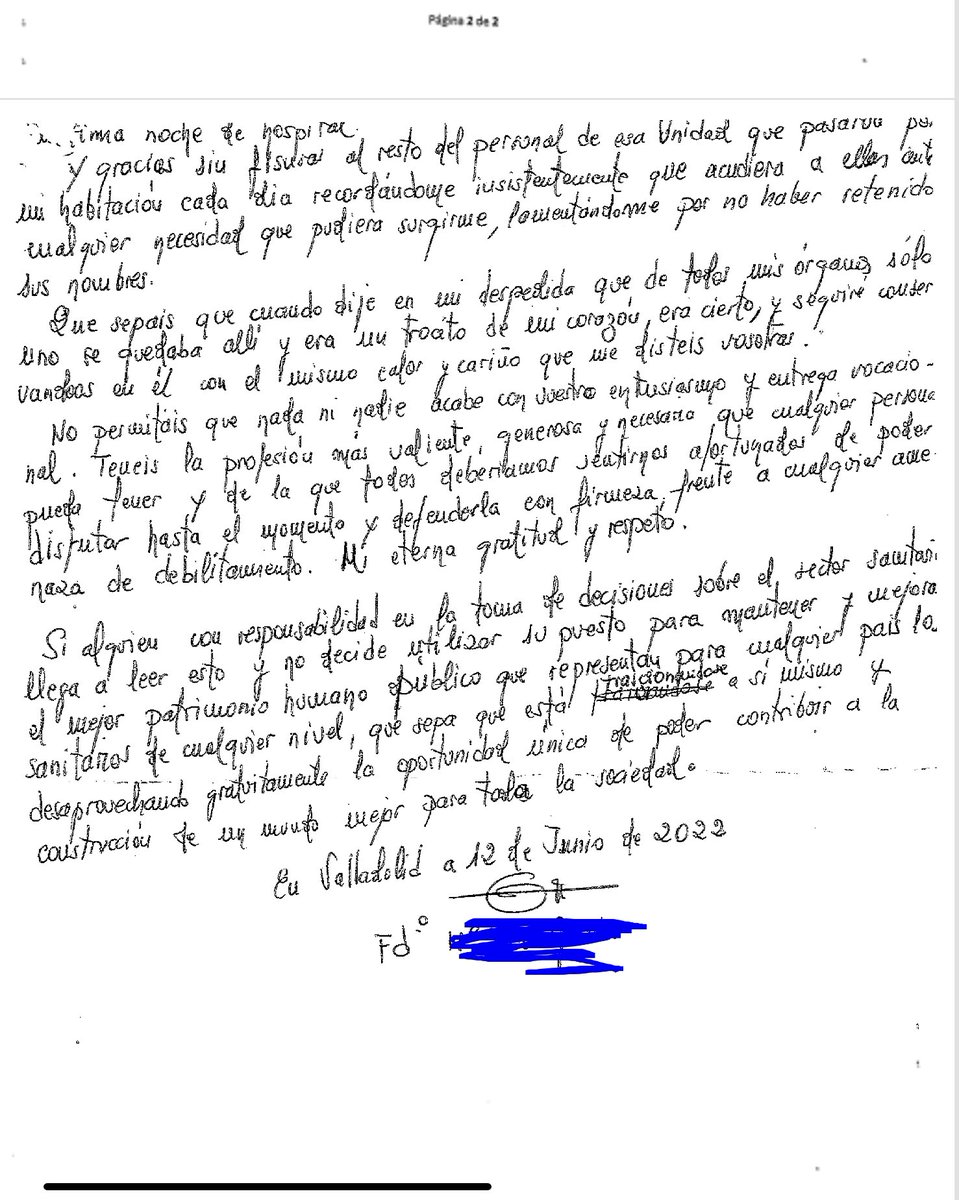 Página 2 de 2
noche de hospital.
Y gracias sin fisuras al resto del personal de esa Unidad que pasaron por
mi habitación cada día recordándome insistentemente que acudiera a ellas ante
cualquier necesidad que pudiera surgirme, lamentándome por no haber retenido
sus nombres.
Que sepais que cuando dije en mi despedida que de todos mis órganos sólo
uno se quedaba allí y era un trocito de mi corazón, era cierto, y seguiré conser
vandoos en él con el mismo calor y cariño que me disteis vosotras.
No permitáis que nada ni nadie acabe con vuestro entusiasmo y entrega vocacio-
nal. Teneis la profesión más valiente, generosa y necesaria que cualquier persona
pueda tener y de la que todos deberíamos sentirnos afortunados de poder
disfrutar hasta el momento y defenderla con firmeza frente a cualquier ame
naza de debilitamiento. Mi eterna gratitud y respeto.
Si alguien con responsabilidad en la toma de decisiones sobre el sector sanitari
llega a leer esto y no decide utilizar su puesto para mantener y mejora
el mejor patrimonio humano público que representan para cualquier país lo
sanitarios de cualquier nivel, que sepa que está traicionandose a sí mismo y
desaprovechando gratuitamente la oportunidad única de poder contribuir a la
construcción de un mundo mejor para toda la sociedad.
En Valladolid a 12 de Junio de 2022
Fdº